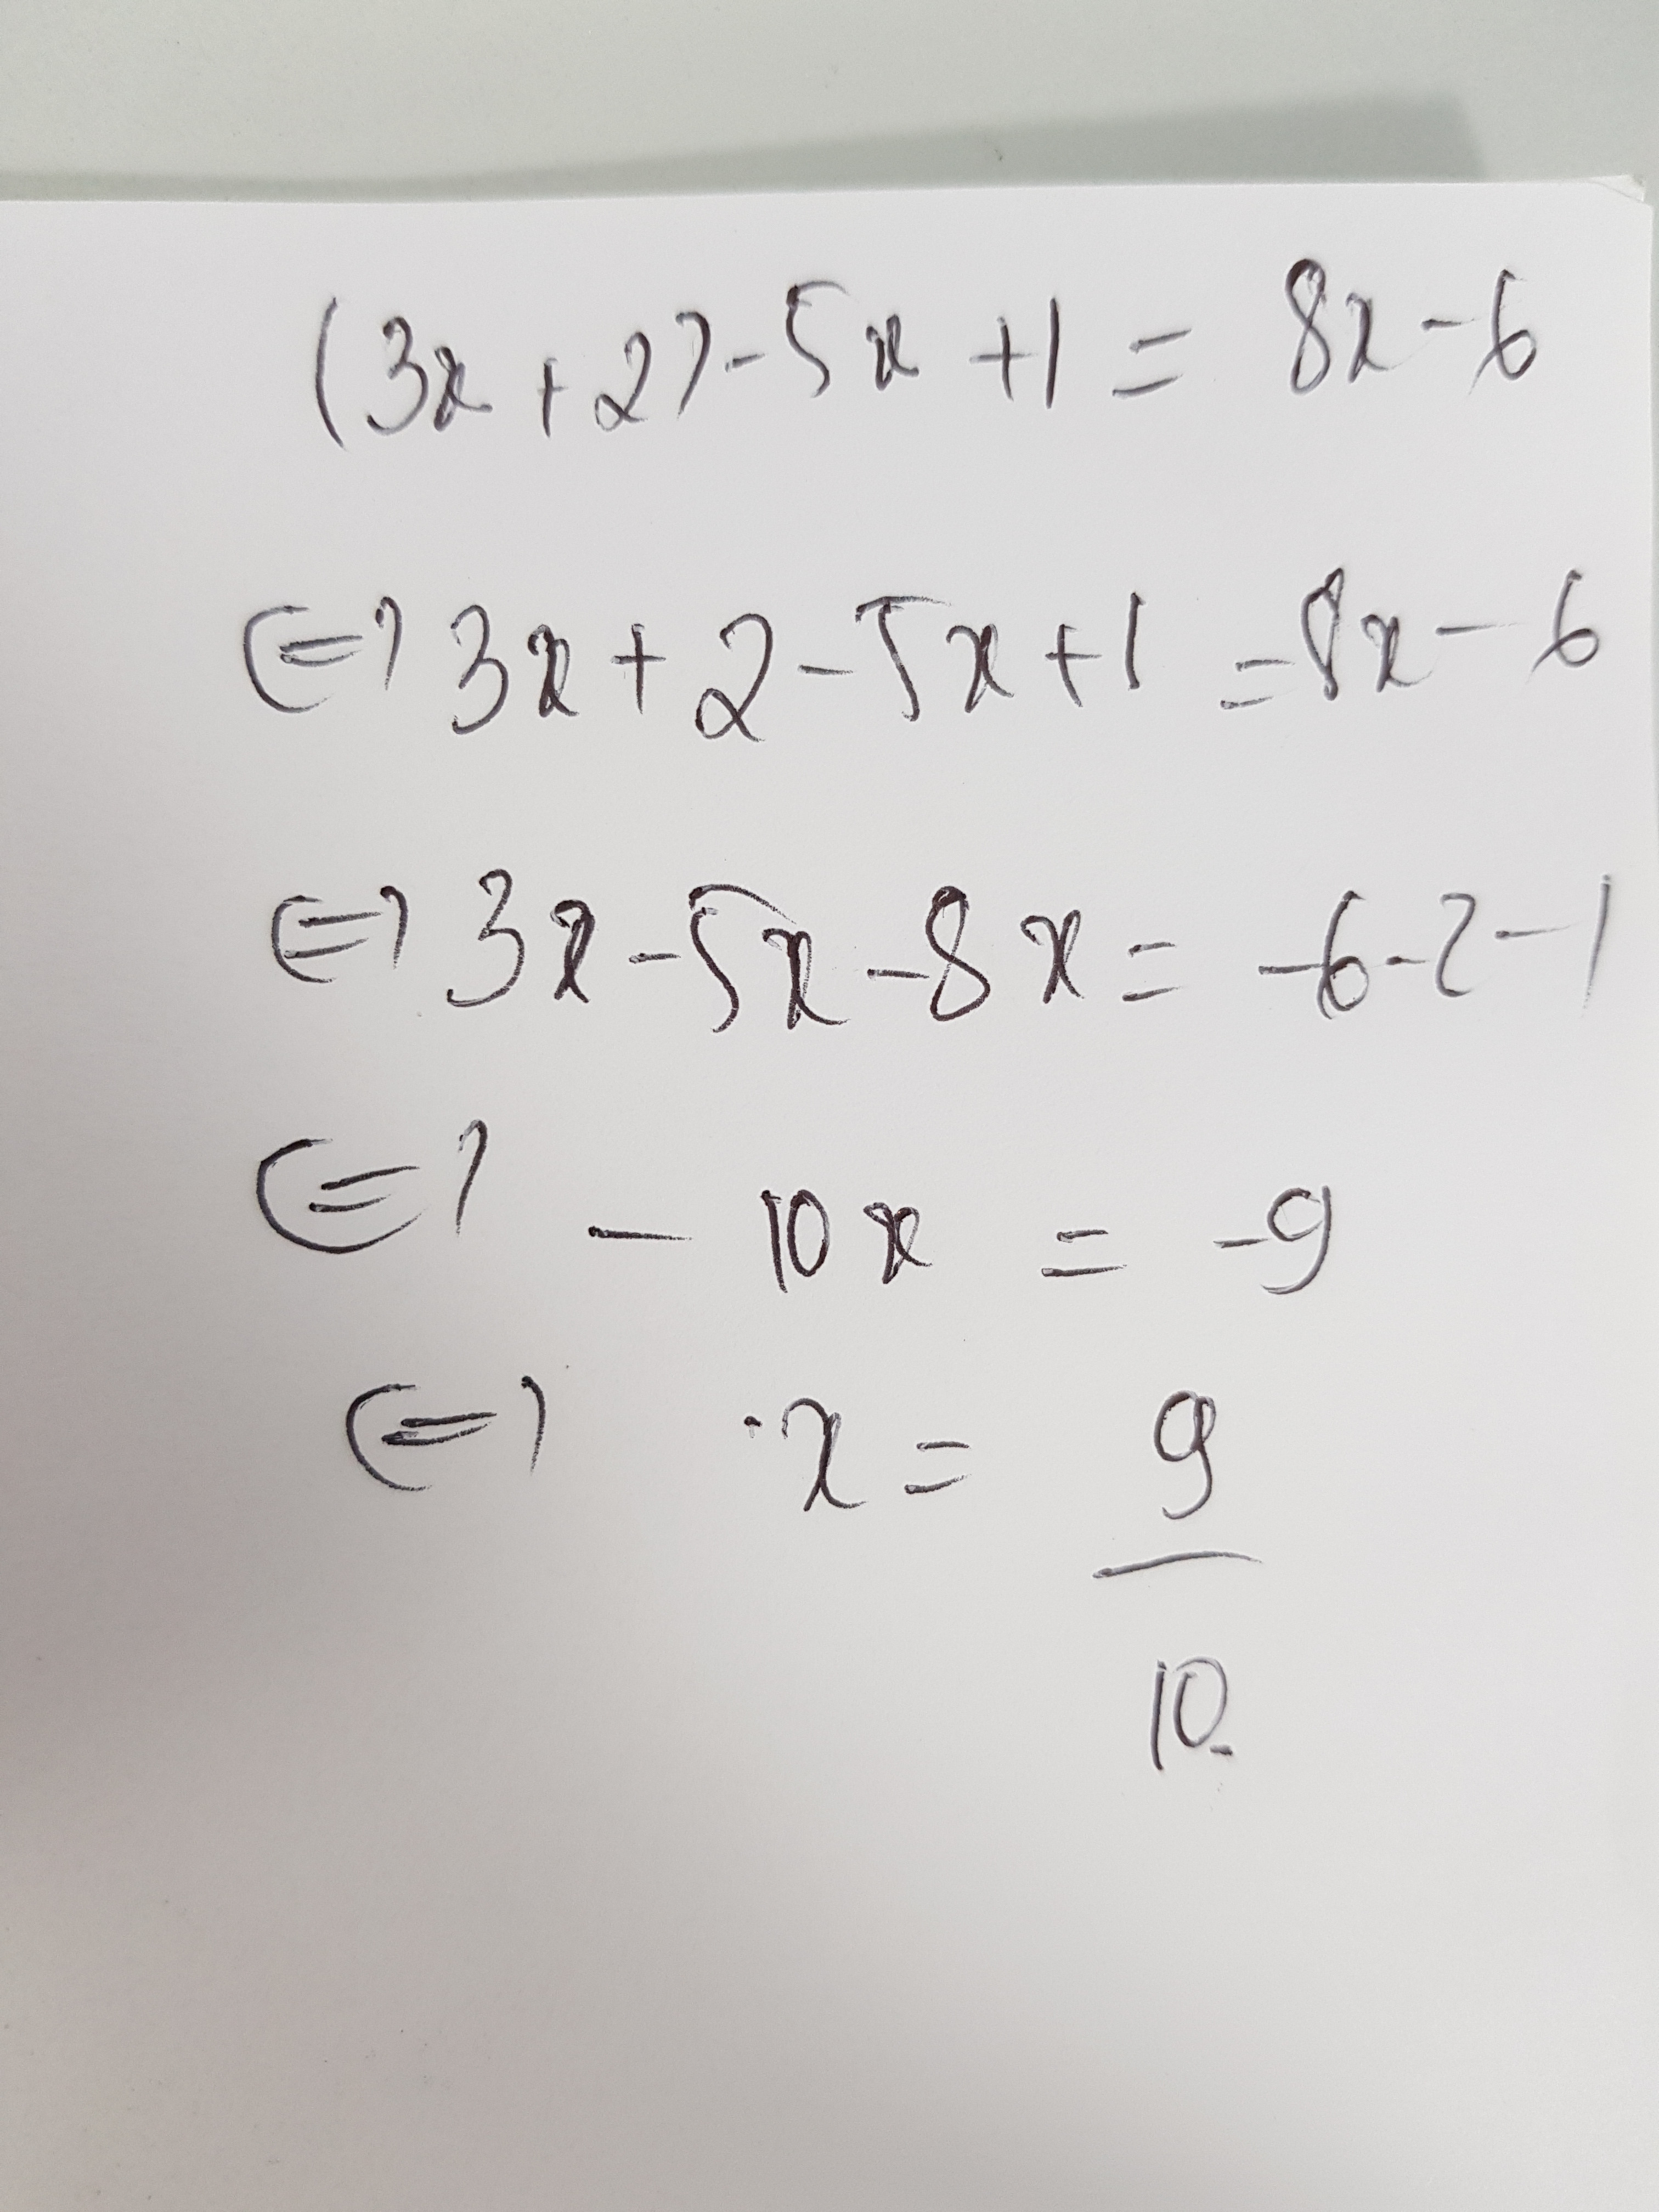 (3x+2)-5x+1=8x-6
⇔3x+2-5x+1=8x-6
⇔3x-5x-8x=-6-2-1
⇔-10x=-9
⇔x=9/10